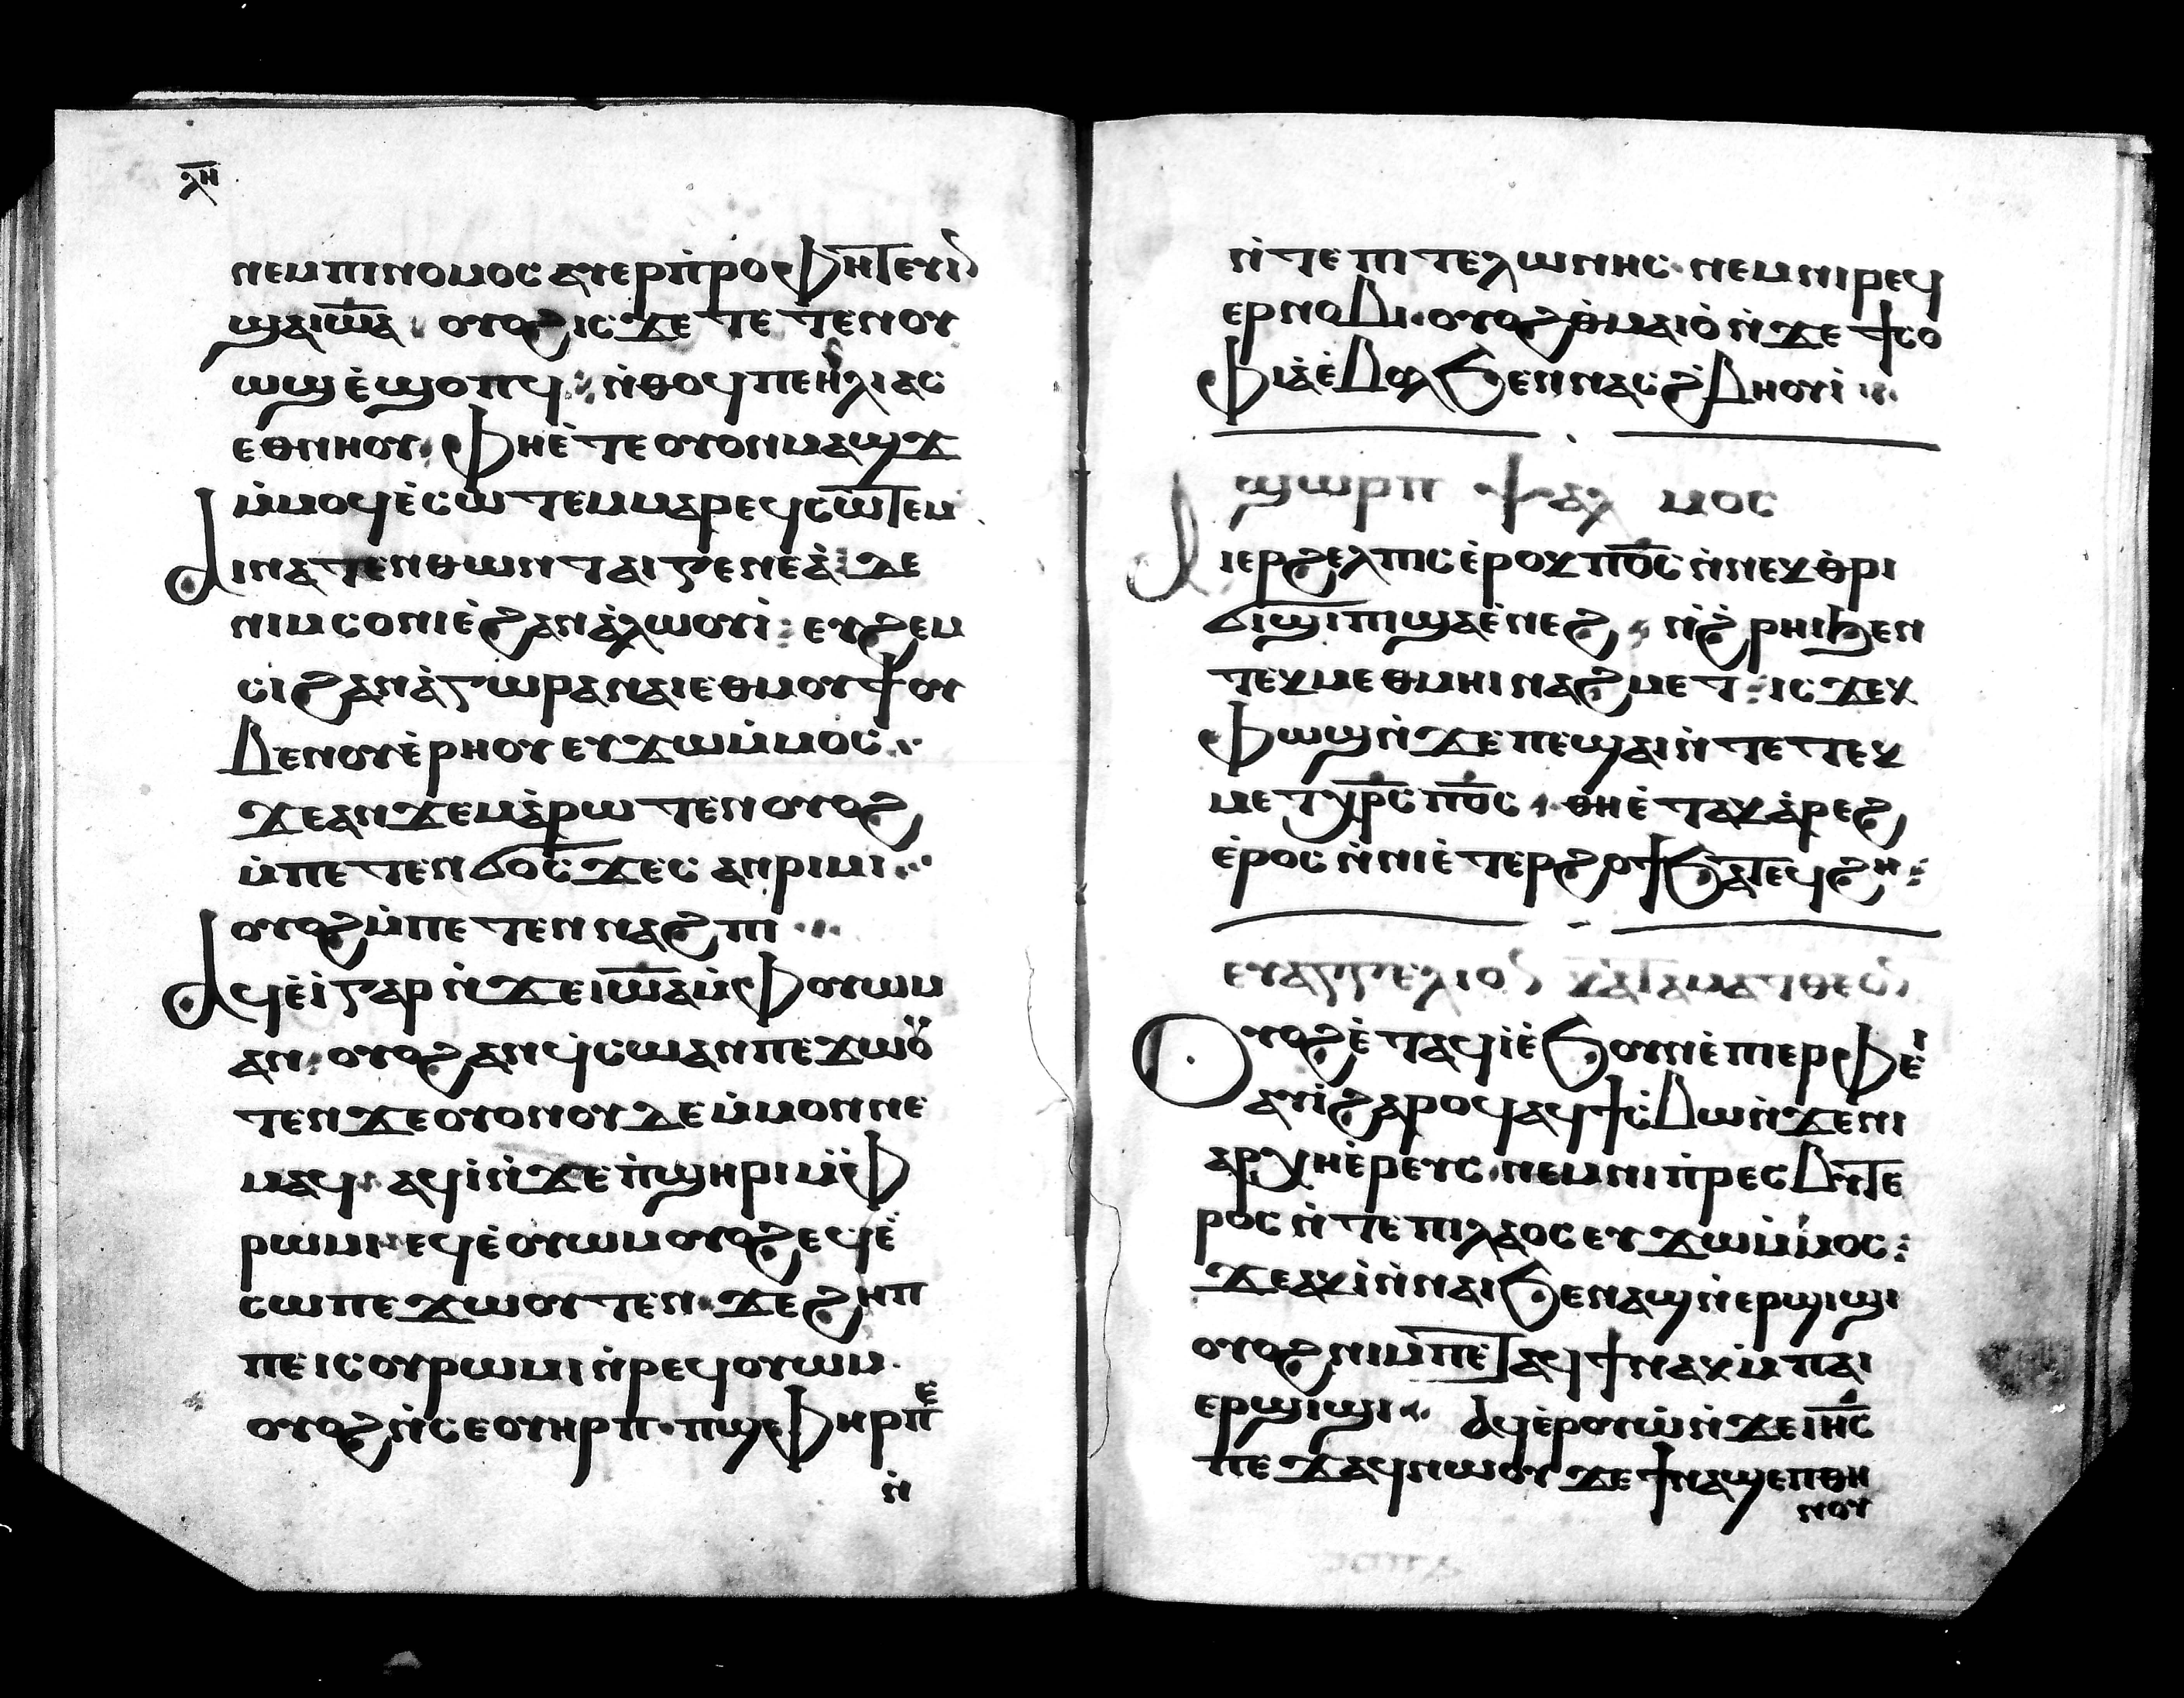 ⲗ̅ⲏ̅
ⲛⲉⲙⲡⲓⲛⲟⲙⲟⲥ ⲁⲩⲉⲣⲡ̀ⲣⲟⲫⲏⲧⲉⲩⲓⲛ
ϣⲁⲓⲱ̅ⲁ̅ · ⲟⲩⲟϩ ⲓⲥϫⲉ ⲧⲉⲧⲉⲛⲟⲩ
ⲱϣ ⲉ̀ϣⲟⲡϥ ⁖ ⲛ̀ⲑⲟϥ ⲡⲉ ⲏ̀ⲗⲓⲁⲥ
ⲉⲑⲛⲏⲟⲩ · ⲫⲏⲉ̀ⲧⲉ ⲟⲩⲟⲛ ⲙⲁϣϫ
ⲙ̀ⲙⲟϥ ⲉ̀ⲥⲱⲧⲉⲙ ⲙⲁⲣⲉϥⲥⲱⲧⲉⲙ
ⲁⲓⲛⲁⲧⲉⲛⲑⲱⲛ ⲧⲁⲓⲅⲉⲛⲉⲁ̀ ϫⲉ
ⲛⲓⲙ ⲥⲟⲛⲓ ⲉ̀ϩⲁⲛⲁ̀ⲗⲱⲟⲩⲓ̀ ⁖ ⲉⲩϩⲉⲙ
ⲥⲓ ϩⲁⲛⲁ̀ⲅⲱⲣⲁ ⲛⲁⲓ ⲉⲑⲙⲟⲩϯ ⲟⲩ
ⲃⲉ ⲛⲟⲩⲉ̀ⲣⲏⲟⲩ ⲉⲩϫⲱ ⲙ̀ⲙⲟⲥ ⁖
ϫⲉ ⲁⲛϫⲉⲙⲁ̀ⲣⲱⲧⲉⲛ ⲟⲩⲟϩ
ⲙ̀ⲡⲉⲧⲉⲛϭⲟⲥϫⲉⲥ ⲁⲛⲣⲓⲙⲓ ⁖
ⲟⲩⲟϩ ⲙ̀ⲡⲉⲧⲉⲛⲛⲁϩⲡⲓ ⁖
ⲁϥⲉ̀ⲓ̀ ⲅⲁⲣ ⲛ̀ϫⲉ ⲓⲱ̅ⲁ̅ ⲙ̀ⲫⲟⲩⲱⲙ
ⲁⲛ · ⲟⲩⲟϩ ⲁⲛϥ̀ⲥⲱ ⲁⲛ ⲡⲉϫⲱⲟⲩ
ⲧⲉⲛ ϫⲉ ⲟⲩⲟⲛ ⲟⲩⲇⲉⲙ̀ⲙⲟⲛ ⲛⲉ
ⲙⲁϥ · ⲁϥⲓ̀ ⲛ̀ϫⲉ ⲡ̀ϣⲏⲣⲓ ⲙ̀ⲫ
ⲣⲱⲙⲓ ⲉϥⲉ̀ⲟⲩⲱⲙ ⲟⲩⲟϩ ⲉϥⲉ̀
ⲥⲱ ⲡⲉϫⲱⲟⲩⲧⲉⲛ · ϫⲉ ϩⲏⲡ
ⲡⲉ ⲓⲥ ⲟⲩⲣⲱⲙⲓ ⲛ̀ⲣⲉϥⲟⲩⲱⲙ ·
ⲟⲩⲟϩ ⲛ̀ⲥⲉⲟⲩⲏⲣⲡ · ⲡϣⲫⲏⲣⲡⲉ̀
ⲛ̀
ⲛ̀ⲧⲉ ⲡⲓⲧⲉⲗⲱⲛⲏⲥ · ⲛⲉⲙ ⲛⲓⲣⲉϥ
ⲉⲣⲛⲟⲃⲓ · ⲟⲩⲟϩ ⲑ̀ⲙⲁⲓⲟ̀ ⲛ̀ϫⲉ ϯⲥⲟ
ⲫⲓⲁ̀ ⲉ̀ⲃⲟⲗ ϧⲉⲛ ⲛⲁⲥϩ̀ⲃⲏⲟⲩⲓ̀ ⁖
ϣⲱⲣⲡ ⲯⲁⲗⲙⲟⲥ
ⲁⲓⲉⲣϩⲉⲗⲡⲓⲥ ⲉ̀ⲣⲟⲕ ⲡⲟ̅ⲥ̅ ⲛ̀ⲛⲉⲕⲑ̀ⲣⲓ
ϭⲓϣⲓⲡⲓ ϣⲁ ⲉ̀ⲛⲉϩ ⁖ ⲛ̀ϩ̀ⲣⲏⲓ ϧⲉⲛ
ⲧⲉⲕⲙⲉⲑⲙⲏⲓ ⲛⲁϩⲙⲉⲧ ⁖ ⲓⲥϫⲉⲕ
ⲫⲱϣ ⲛ̀ϫⲉ ⲡⲉϣⲁⲓ ⲛ̀ⲧⲉ ⲧⲉⲕ
ⲙⲉⲧⲭ̅ⲣ̅ⲥ̅ ⲡⲟ̅ⲥ̅ · ⲑⲏⲉ̀ⲧⲁⲕⲁ̀ⲣⲉϩ
ⲉ̀ⲣⲟⲥ ⲛ̀ⲛⲓⲉ̀ⲧⲉⲣϩⲟϯ ϧⲁⲧⲉϥϩⲏ ⁖
ⲉⲩⲁⲅⲅⲉⲗⲓⲟⲛ ⲕⲁⲧⲁ ⲙⲁⲧⲑⲉⲟⲛ
ⲟⲩⲟϩ ⲉ̀ⲧⲁϥⲓ̀ ⲉ̀ϧⲟⲩⲛ ⲉ̀ⲡⲓⲉⲣⲫⲉⲓ̀
ⲁⲩⲓ̀ ϩⲁⲣⲟϥ ⲁϥϯⲥ̀ⲃⲱ ⲛ̀ϫⲉ ⲛⲓ
ⲁⲣⲭⲏⲉ̀ⲣⲉⲩⲥ · ⲛⲉⲙ ⲛⲓⲡ̀ⲣⲉⲥⲃⲩⲧⲉ
ⲣⲟⲥ ⲛ̀ⲧⲉ ⲡⲓⲗⲁⲟⲥ ⲉⲩϫⲱ ⲙ̀ⲙⲟⲥ ⁖
ϫⲉ ⲁⲕⲓ̀ⲣ̀ⲓ ⲛ̀ⲛⲁⲓ ϧⲉⲛ ⲁϣ ⲛ̀ⲉⲣϣⲓϣⲓ
ⲟⲩⲟϩ ⲛⲓⲙ ⲡⲉⲧⲁϥϯ ⲛⲁⲕ ⲙ̀ⲡⲁⲓ
ⲉⲣϣⲓϣⲓ ⁖ ⲁϥⲉ̀ⲣⲟⲩⲱ̀ ⲛ̀ϫⲉ ⲓⲏ̅ⲥ̅
ⲡⲉϫⲁϥ ⲛⲱⲟⲩ ϫⲉ ϯⲛⲁϣⲉⲛⲑⲏ
ⲛⲟⲩ